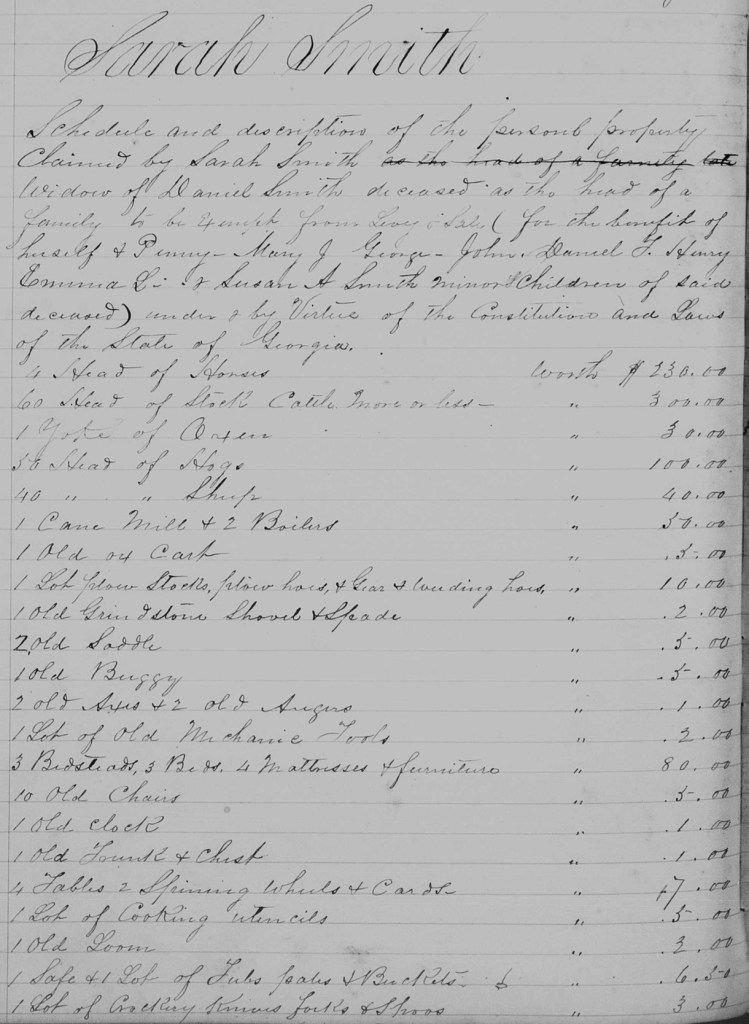 Sarah Smith
Schedule and discription of the personl property
Claimed by Sarah Smith as the head of a family late
Widow of Daniel Smith deceased as the head of a
family to be Exempt from Levy & Sale (for the benefit of
herself & Penny - Mary J George - John. Daniel T. Henry
Emma L. & Susan A Smith minor Children of said
deceased) under & by Virtue of the Constitution and Laws
of the State of Georgia.
4 Head of Horses worth $ 230.00
60 Head of Stock Cattle More or less - " 300.00
1 Yoke of Oxen " 30.00
50 Head of Hogs " 100.00
40 " " Sheep " 40.00
1 Cane Mill & 2 Boilers " 50.00
1 Old ox Cart " .5.00
1 Lot plow Stocks, plow hoes, & Gear & weeding hoes, " 10.00
1 Old Grindstone Shovel & Spade " .2.00
2 Old Saddle " .5.00
1 Old Buggy " .5.00
2 old Axes & 2 old Augers " .1.00
1 Lot of Old Mechanic Tools " .2.00
3 Bedsteads, 3 Beds, 4 Mattresses & furniture " 80.00
10 Old Chairs " .5.00
1 Old Clock " .1.00
1 Old Trunk & Chest " .1.00
4 Tables 2 Spining Wheels & Cards " 7.00
1 Lot of Cooking utencils " .5.00
1 Old Loom " 2.00
1 Safe & 1 Lot of Tubs pales & Buckets " .6.50
1 Lot of Crockery Knives forks & Spoos " 3.00